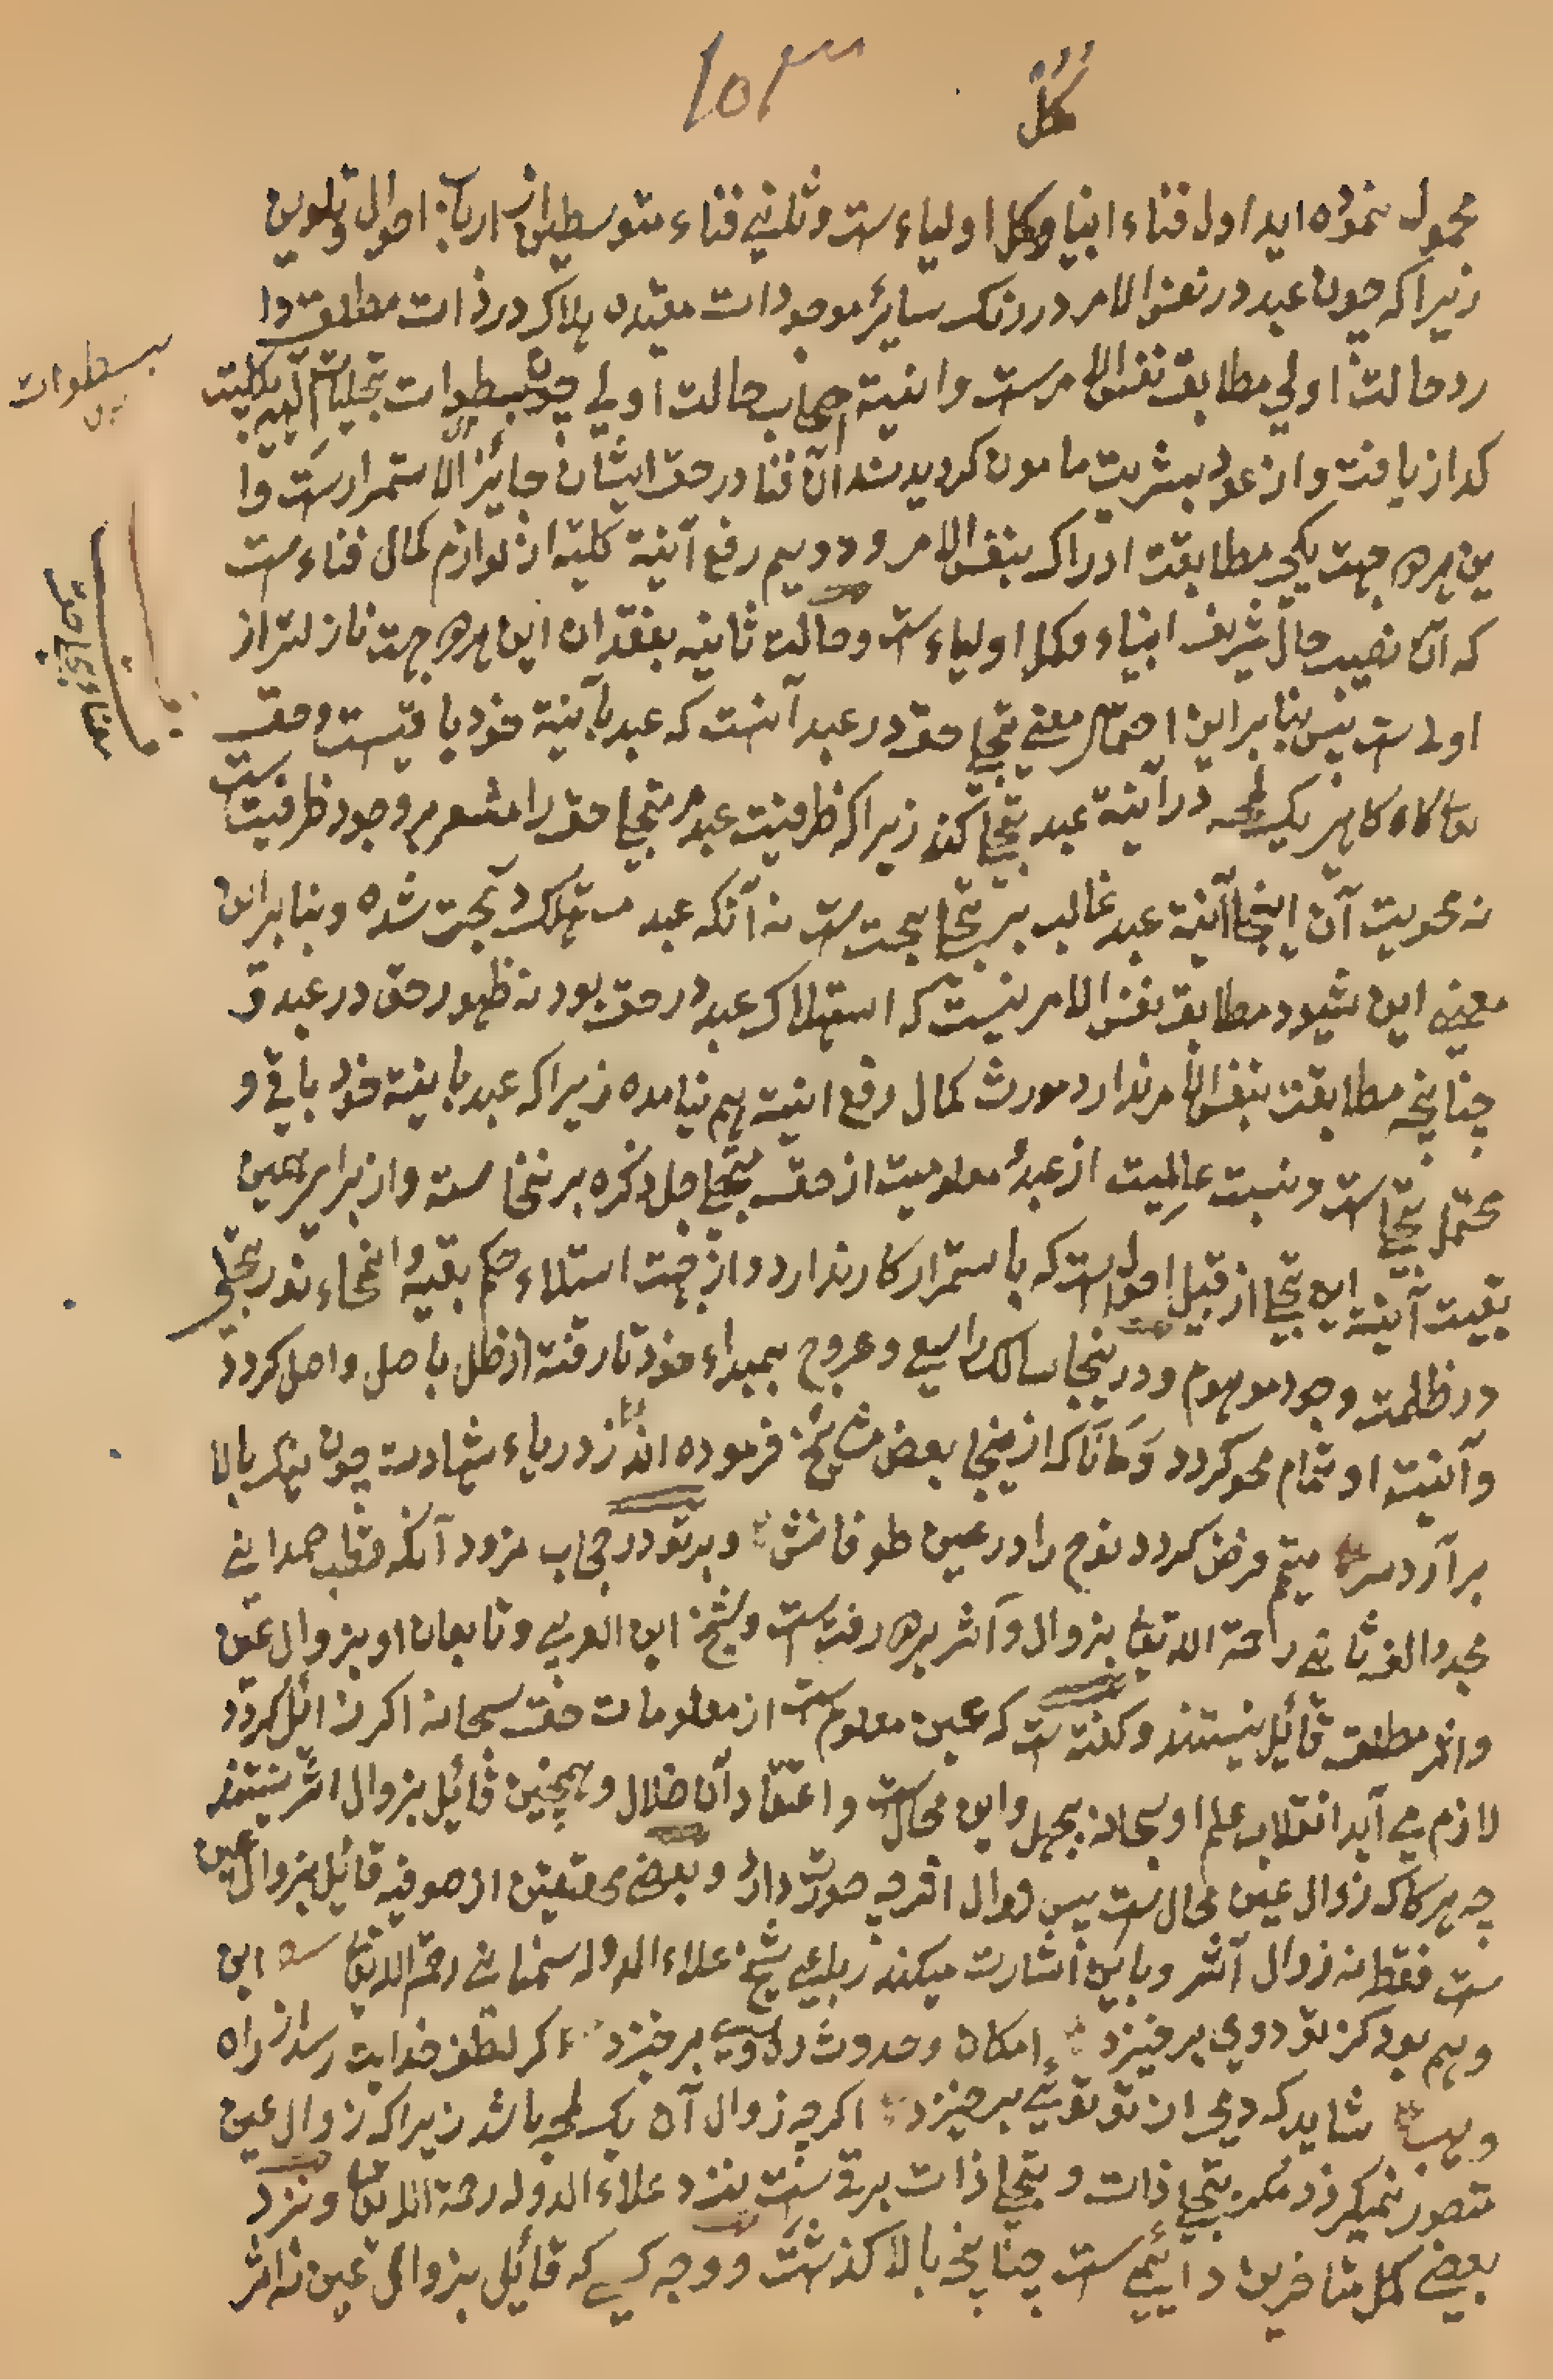 ۱۵۳
كُمَّل
محمول نموده اید اول فناء انبیا وکمل اولیاء ست وثانی فناء متوسطین از ارباب احوال وتلوین
زیرا که چون عبد در نفس الامر در رنگ سایر موجودات مقیده هلاک در ذات مطلق دا
رد حالت اولی مطابق نفس الامر ست وانیة اصحاب حالت اولی چون بسطوات تجلیات الهیه بکلیت
کداز یافت واز عود بشریت مامون کردیدند آن فنا در حق ایشان جائز الاستمرار ست وا
ین هر دو جهت یکی مطابقت ادراک بنفس الامر ودویم رفع آنیة کلیة از لوازم کمال فناء ست
که آن نصیب حال شریف انبیاء وکمل اولیاء ست وحالت ثانیه بفقدان این هر دو جهت نازلتر از
اولی ست پس بنابر این احتمال معنی تجلی حق در عبد آنست که عبد بآنیة خود باقیست وحق
تعالی کاه کاه در یک لمحه در آنیة عبد تجلی کند زیرا که ظرفیت عبد مر تجلی حق را مشعر بر وجود ظرفیت ست
نه محویت آن اینجا آنیة عبد غالب بر تجلی بحت ست نه آنکه عبد مستهلک در بحت شده وبنابر این
معنی این شهود مطابق نفس الامر نیست که استهلاک عبد در حق بود نه ظهور حق در عبد و
چنانچه مطابقت بنفس الامر ندارد مورث کمال رفع انیت هم نیامده زیرا که عبد بانیة خود باقی و
محتمل تجلی ست ونسبت عالمیت از عبد ومعلومیت از حق متجلی جل ذکره بر نخاسته واز برای همین
بقیت آنیة این تجلی از قبیل احوال ست که باستمرار کار ندارد واز جهت استیلاء حکم بقیه وانمحاء نور تجلی
در ظلمت وجود موهوم ودرینجا سالک را سیع وعروج بمبداء خود نارفته از ظل باصل واصل کردد
وآنیت او تمام محو کردد وهمانا که ازینجا بعض مشایخ فرموده اند ز دریاء شهادت چون نهنک بالا
برآرد سر تیمم فرض کردد نوح را در عین طوفانش وپرتو در حجاب مرود آنکه قطب صمدانی
مجدد الف ثانی رحمة الله تعالی بزوال وآثر هر دو رفته ست وشیخ ابن العربی وتابعان او بزوال عین
واثر مطلق قائل نیستند وکفته ست که عین معلوم ست از معلومات حق سبحانه اکر زائل کردد
لازم می آید انقلاب علم او سبحانه بجهل واین محال ست واعتقاد آن ضلال وهمچنین قائل بزوال اثر نیستند
چه هر کاه زوال عین محال ست پس زوال اثر چه صورت دارد وبعضی محققین از صوفیه قائل بزوال عین
ست فقط نه زوال آثر وباین اشارت میکند رباعی شیخ علاء الدوله سمنانی رحمة الله تعالی این
وهم بود کز تو دوی برخیزد امکان وحدوث برخیزد اکر لطف خدایت رسد از راه
وهب شاید که دمی از تو توئی برخیزد اکرچه زوال آن یک لمحه باشد زیرا که زوال عین
متصور نمیکردد مکر بتجلی ذات وتجلی ذات برقی ست نزد علاء الدوله رحمة الله تعالی ونزد
بعضی کمل متاخرین دائمی ست چنانچه بالا کذشت ووجه کسی که قائل بزوال عین نه اثر
بسطوات